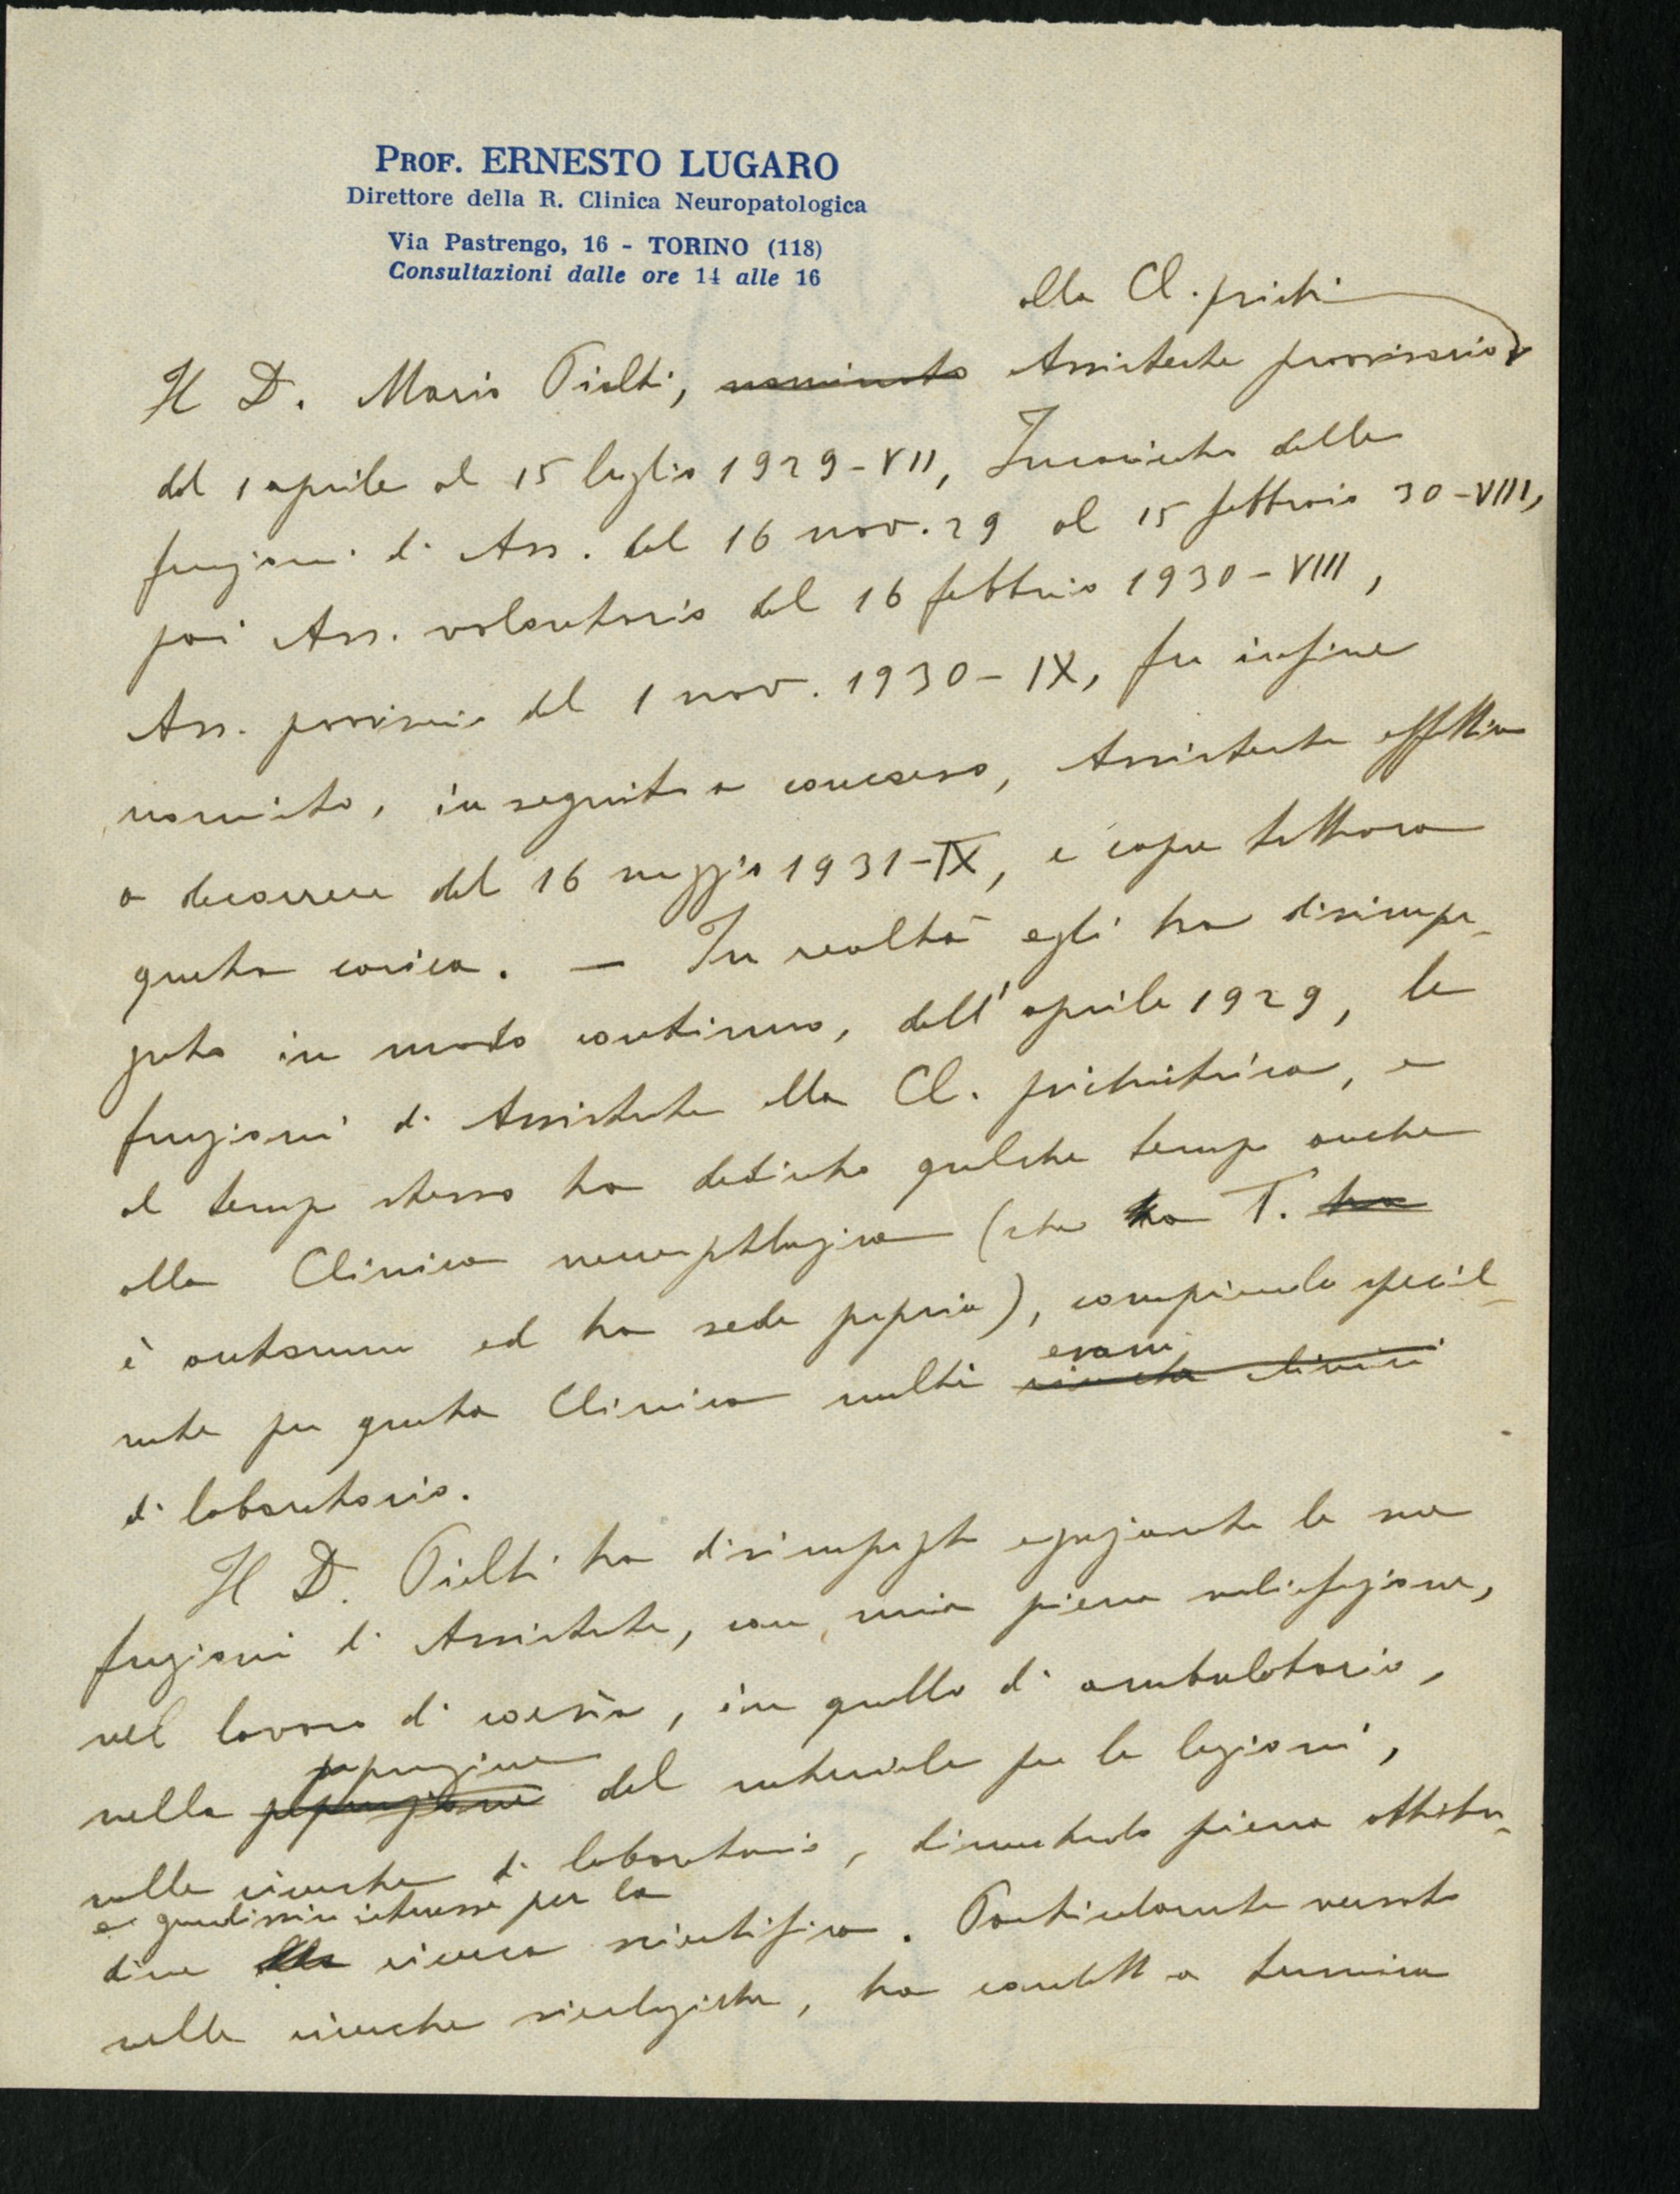 PROF. ERNESTO LUGARO
Direttore della R. Clinica Neuropatologica
Via Pastrengo, 16 - TORINO (118)
Consultazioni dalle ore 14 alle 16
alla Cl. psichi
Il D. Mario nominato Assistente provvisorio
dal 1 aprile al 15 luglio 1929-VII, Incaricato delle
funzioni di Ass. dal 16 nov. 29 al 15 febbraio 30-VIII,
poi Ass. volontario dal 16 febbraio 1930-VIII,
Ass. provvisorio dal 1 nov. 1930-IX, fu infine
nominato, in seguito a concorso, Assistente effettivo
a decorrere dal 16 maggio 1931-IX, e copre tuttora
questa carica. — In realtà egli ha disimpe-
gnato in modo continuo, dall'aprile 1929, le
funzioni di Assistente alla Cl. psichiatrica, e
al tempo stesso ha dedicato qualche tempo anche
alla Clinica neuropatologica (che ha T. ha
è autonoma ed ha sede propria), compiendo special-
mente per questa Clinica molti
esami
ricerche cliniche
di laboratorio.
Il D. ha disimpegnato egregiamente le sue
funzioni di Assistente, con mia piena soddisfazione,
nel lavoro di corsia, in quello di ambulatorio,
preparazione
nella preparazione del materiale per le lezioni,
nelle ricerche di laboratorio, dimostrando piena attitu-
e grandissimo interesse per la
dine alla ricerca scientifica. Particolarmente versato
nelle ricerche sierologiche, ha condotto a termine